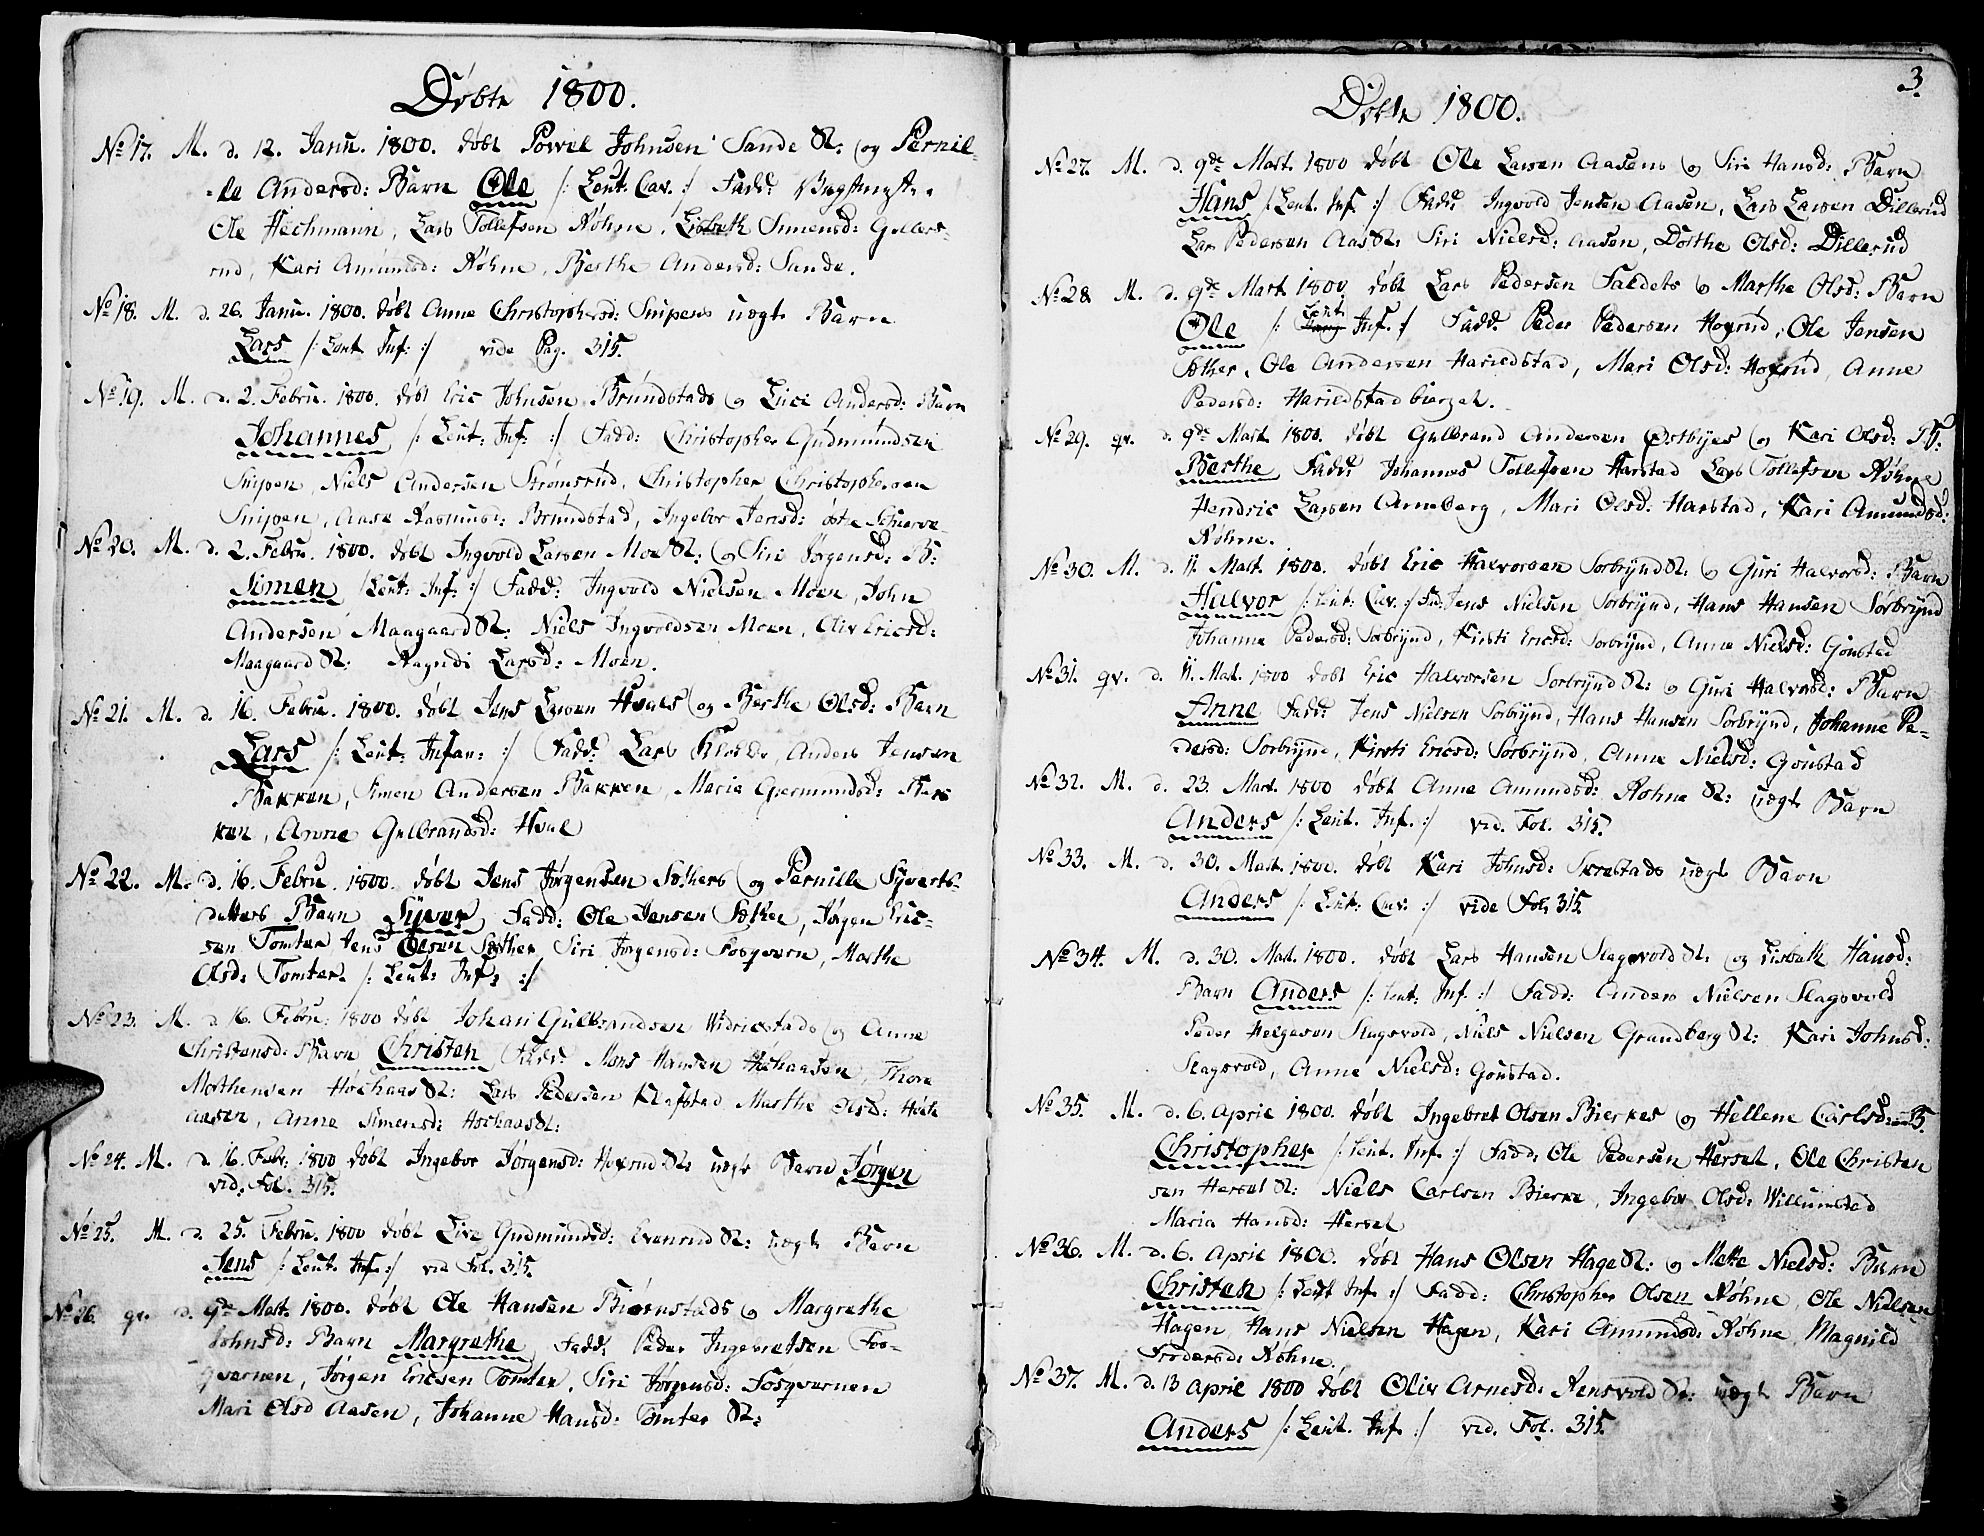 Døbte 1800.
No 17. M. d. 12. Janu. 1800. døbt Povel Johnsen Sande St: og Pernil-
-le Andersd: Barn Ole /: Leut. Cav. :/ Fadd:
Ole Hechmann, Lars Tollefsen Røhne, Lisbeth Simensd: Gullers-
rud, Kari Amundsd: Røhne, Berthe Andersd: Sande.
No 18. M. d. 26. Janu. 1800. døbt Anne Christophersd: Snipens uægte Barn
Lars /: Leut. Inf: :/ vide Pag. 315.
No 19. M. d. 2. Febru. 1800. døbt Eric Johnsen Brúndstads og Lisci Andersd: Barn
Johannes /: Leut: Inf: :/ Fadd: Christopher Gúdmúndsen
Snipen, Niels Andersen Strømsrúd, Christopher Christophersen
Snipen, Aase Rasmusd: Brúndstad, Ingebor Jensd: østre
No 20. M. d. 2. Febru. 1800. døbt Ingvold Larsen Moe St: og Siri Jørgensd: B:
Simen /: Leut: Inf: :/ Fadd: Ingvold Nielsen Moen, John
Andersen Maagaard St: Niels Ingvoldsen Moen, Oliv Ericsd:
Maagaard St: Ragndi Larsd: Moen.
No 21. M. d. 16. Febru. 1800. døbt Jens Larsen Hvals og Berthe Olsd: Barn
Lars /: Leut: Infan: :/ Fadd: Lars, Anders Jensen
Bakken, Simen Andersen Bakken, Maria Germundsd: Bak-
ken, Anne Gulbrandsd: Hval
No 22. M. d. 16. Febru. 1800. døbt Jens Jørgensen Sæthers og Pernille Syverts-
datters Barn Syver, Fadd: Ole Jensen Sæther, Jørgen Eric-
sen Tomter Jens Olsen Sæther Siri Jørgensd: Fosqvern, Marthe
Olsd: Tomter. /: Leut: Inf: :/
No 23. M. d. 16. Febru: 1800 døbt Johan Gulbrandsen Widricstads og Anne
Christensd. Barn Christen Fadd: Mons Hansen Høchaasen, Thore
Mothensen Høchaas St: Lars Pedersen Klafstad Marthe Olsd: Høch-
aasen, Anne Simensd: Hochaas St:
No 24. M. d. 16. Febr: 1800 døbt Ingebor Jørgensd: Hoxrud St: uægte Barn Jørgen
vid. Fol. 315.
No 25. M. d. 25. Febru. 1800 døbt Live Gudmundsd: Evenrud St: uægte Barn
Jens /: Leut. Inf. :/ vid Fol. 315.
No 26. qv. d. 9de Mart. 1800. døbt Ole Hansen Biørnstads og Margrethe
Johnsd: Barn Margrethe, Fadd: Peder Ingebretsen Fos-
qvernen, Jørgen Ericsen Tomter, Siri Jørgensd: Fosqvernen
Mari Olsd Aasen, Johanne Hansd: Tomter St:
3.
Døbte 1800.
No 27. M. d. 9de Mart. 1800 døbt Ole Larsen Aasens og Siri Hansd: Barn
Hans /: Leut. Inf. :/ Fadd: Ingvold Jensen Aasen, Lars Larsen Dillerud
Lars Pedersen Aas St: Siri Nielsd: Aasen, Dorthe Olsd: Dillerud
No 28 M. d. 9de Mart. 1800 døbt Lars Pedersen Faldets og Marthe Olsd: Barn
Ole /: Leut. Inf. :/ Fadd. Peder Pedersen Hoxrud, Ole Jensen
Sæther, Ole Andersen Harildstad, Mari Olsd: Hoxrud, Anne
Pedersd: Harildstad bierget.
No 29. qv. d. 9de Mart. 1800. døbt Gulbrand Andersen Østbyes og Kari Olsd: B:
Berthe Fadd: Johannes Tollefsen Harstad Lars Tollefsen Røhne
Hendric Larsen Arneberg, Mari Olsd: Harstad, Kari Amundsd:
Røhne.
No 30. M. d. 11. Mart. 1800. døbt Eric Halvorsen Sorbrÿnd St. og Guri Halvorsd: Barn
Halvor /: Leut: Cav. :/ Fad. Jens Nielsen Sorbrÿnd, Hans Hansen Sorbrÿnd
Johanne Pedersd: Sorbrÿnd, Kirsti Ericsd: Sorbrÿnd, Anne Nielsd: Gonstad
No 31. qv. d. 11. Mart. 1800 døbt Eric Halvorsen Sorbrÿnd St: og Guri Halvorsd: Barn
Anne Fadd: Jens Nielsen Sorbrÿnd, Hans Hansen Sorbrÿnd, Johanne Pe-
dersd: Sorbrÿne, Kirsti Ericsd: Sorbrÿnd, Anne Nielsd: Gonstad
No 32. M. d. 23. Mart. 1800 døbt Anne Amundsd: Røhne St: uægte Barn
Anders /: Leut. Inf. :/ vid. Fol. 315.
No 33. M. d. 30. Mart. 1800. døbt Kari Johnsd: Skrestads uægte Barn
Anders /: Leut: Cav. :/ vide Fol. 315.
No 34. M. d. 30. Mart. 1800. døbt Lars Hansen Slagsvold St: og Lisbeth Hansd:
Barn Anders /: Leut: Inf. :/ Fadd: Anders Nielsen Slagsvold
Peder Helgesen Slagsvold, Niels Nielsen Grundberg St: Kari Johnsd:
Slagsvold, Anne Nielsd: Gonstad.
No 35. M. d. 6. April 1800. døbt Ingebret Olsen Bierkes og Hellene Carlsd: B.
Christopher /: Leut. Inf. :/ Fadd: Ole Pedersen Hersel, Ole Christen
sen Hersel St: Niels Carlsen Bierke, Ingebor Olsd: Willumstad
Maria Hansd: Hersel
No 36. M. d. 6. April 1800. døbt Hans Olsen Hage St: og Mette Nielsd: Barn
Christen /: Leut Inf. :/ Fadd: Christopher Olsen Røhne, Ole Nielsen
Hagen, Hans Nielsen Hagen, Kari Amundsd: Røhne, Magnild
Frodersd: Røhne.
No 37. M. d. 13 April 1800 døbt Oliv Arnesd: Rensvold St: uægte Barn
Anders /: Leut. Inf. :/ vid. Fol. 315.